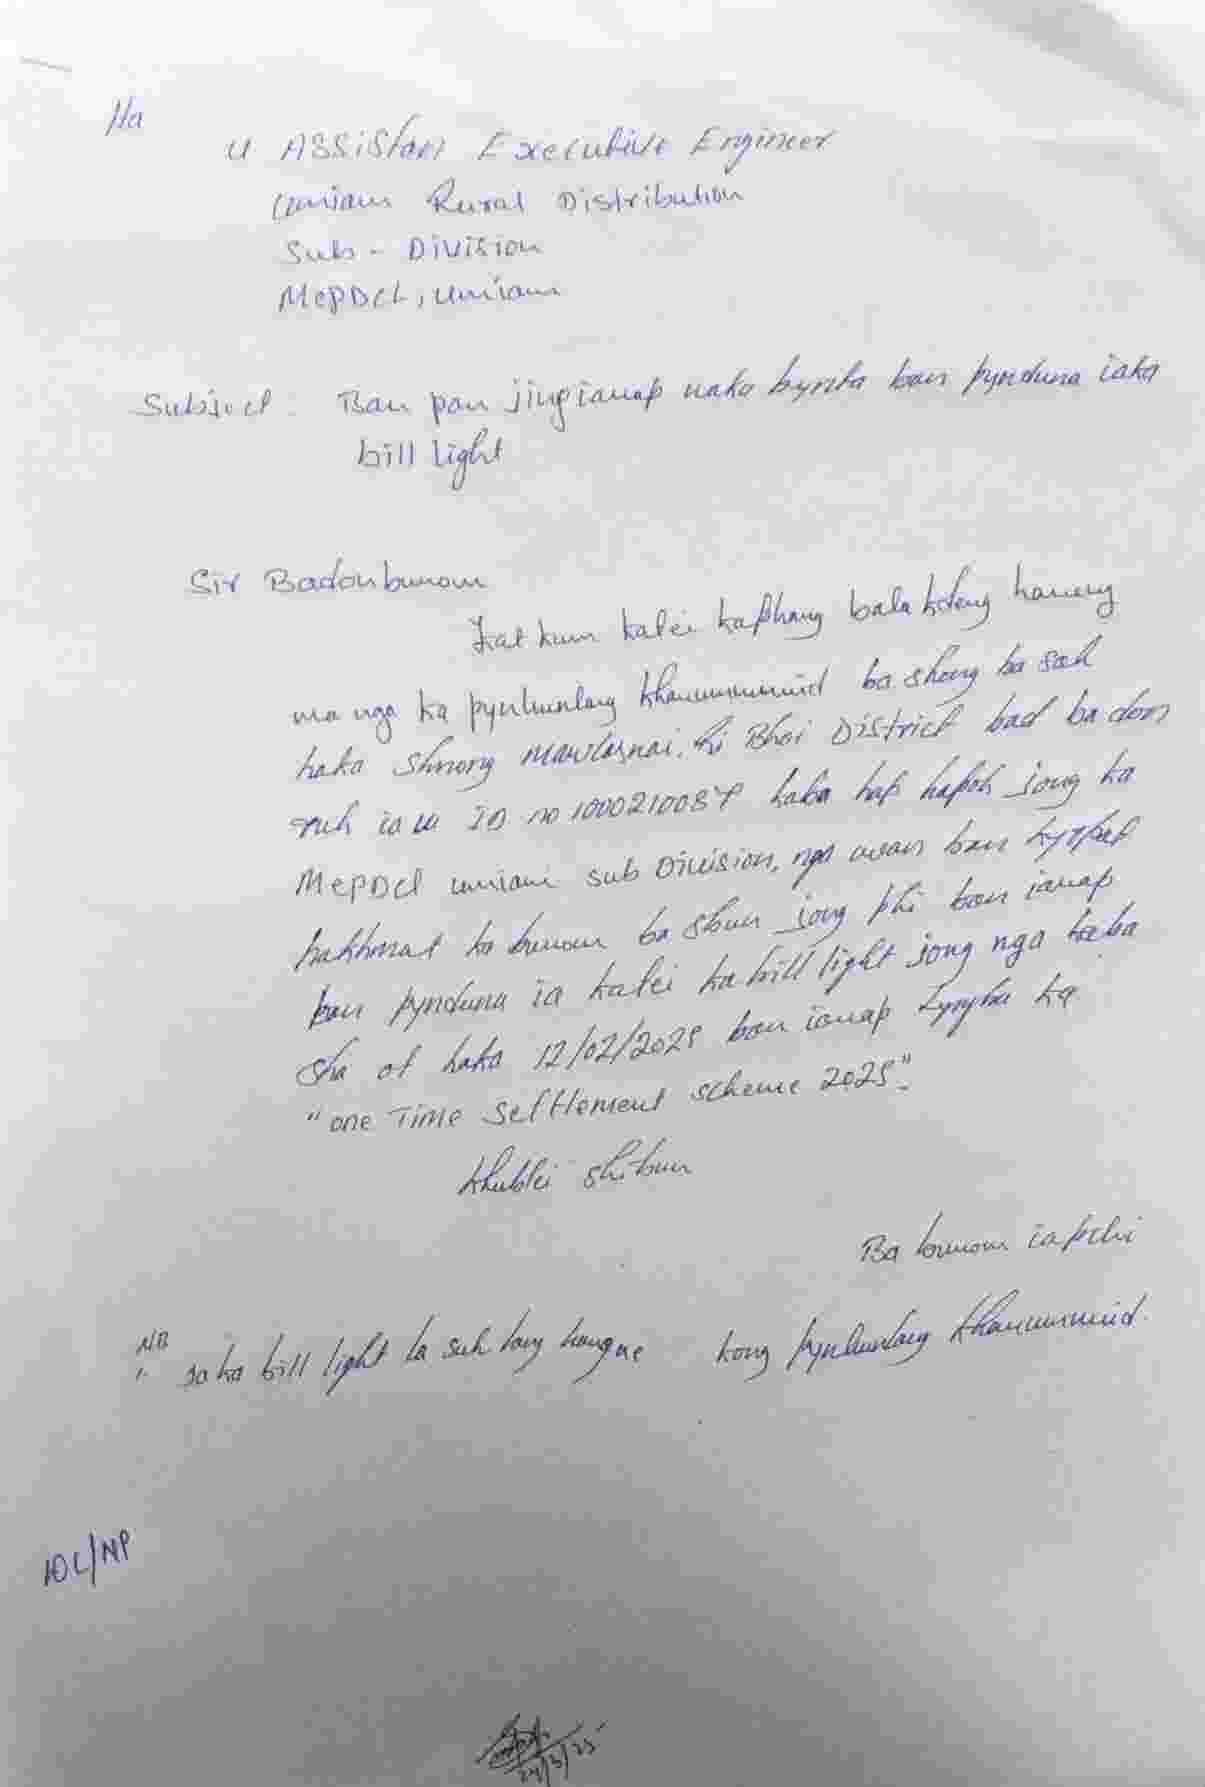 Ha
U Assistan Executive Engineer
Umiam Rural Distribution
Sub - Division
MePDCL, Umiam
Subject. Ban pan jingiarap naka bynta ban pynduna iaka
bill light
Sir Badonburom
Kat kum katei kaphang bala kdew haneng
ma nga ka pynhunlang kharummuid ba shong ba sah
haka shnong mawlasnai, Ri Bhoi District bad ba don
ruh ia u ID no kaba hap hapoh jong ka
MePDCl umiam sub Division, nga wan ban kyrpad
hakhmat ka burom ba shun jong phi ban iarap
ban pynduna ia katei ka bill light jong nga kaba
sha ot haka 12/02/2025 ban iarap kyrpha ka
"one Time Settlement scheme 2025".
khublei shibun
Ba burom iaphi
NB
1. ia ka bill light la suh lang hangne
kong pynhunlang kharummuid.
ADL/NP
24/3/25